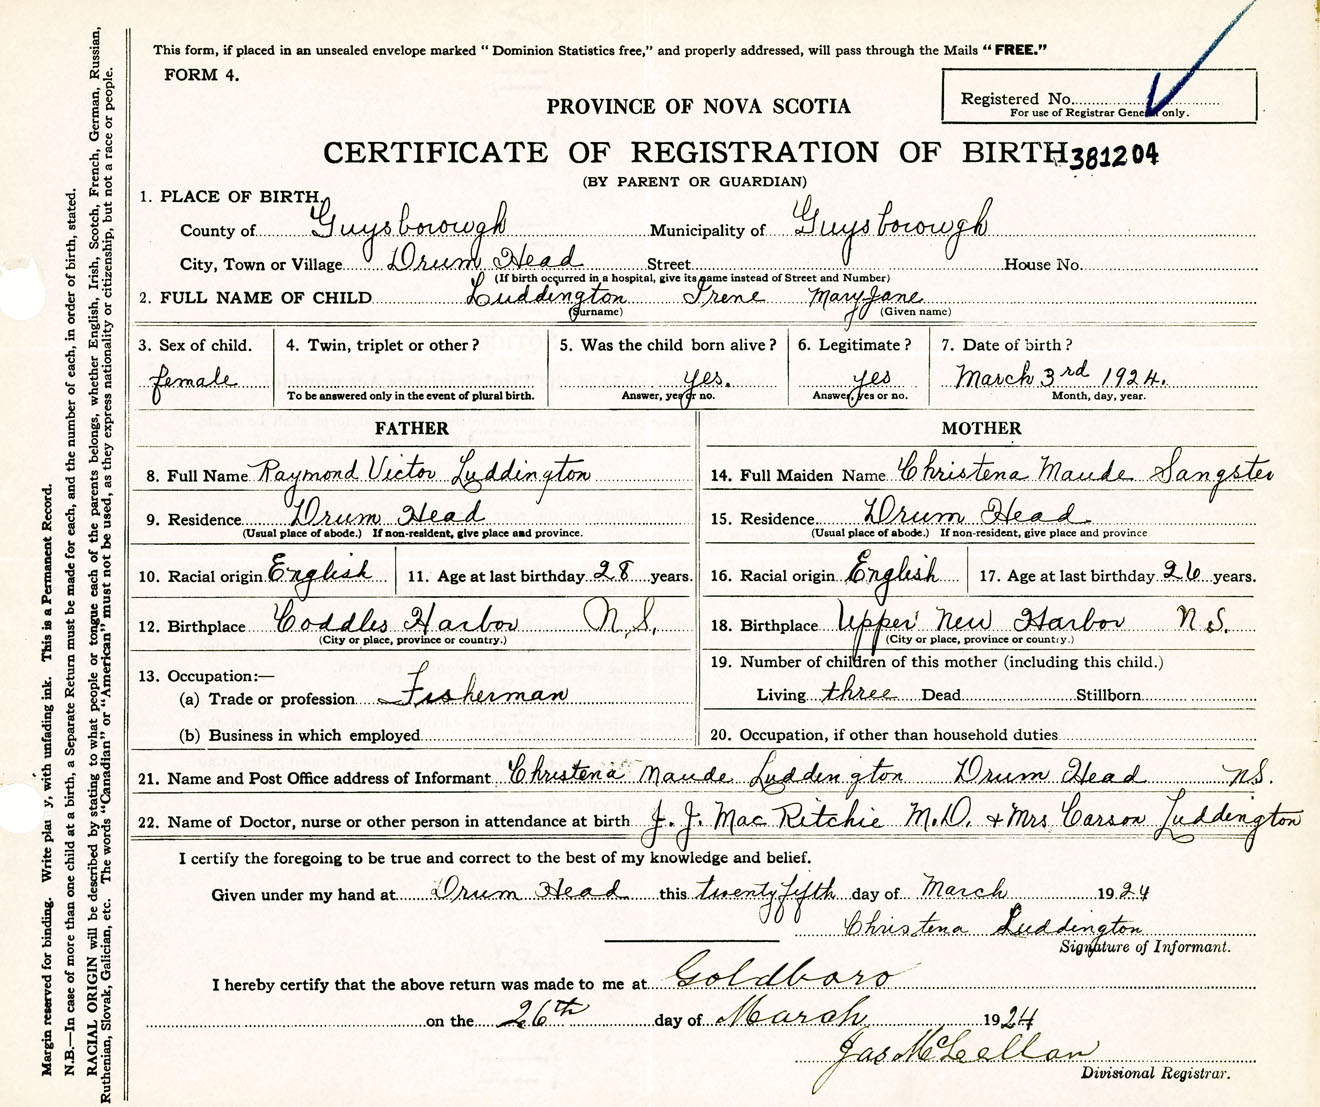 This form, if placed in an unsealed envelope marked “ Dominion Statistics free,” and properly addressed, will pass through the Mails “ FREE.”
FORM 4.
Registered No.
For use of Registrar General only.
PROVINCE OF NOVA SCOTIA
CERTIFICATE OF REGISTRATION OF BIRTH 381204
(BY PARENT OR GUARDIAN)
1. PLACE OF BIRTH,
County of Guysborough Municipality of Guysborough
City, Town or Village Drum Head Street House No.
(If birth occurred in a hospital, give its name instead of Street and Number)
2. FULL NAME OF CHILD Luddington Irene Mary Jane
(Surname) (Given name)
3. Sex of child. 4. Twin, triplet or other? 5. Was the child born alive? 6. Legitimate? 7. Date of birth?
female yes. yes March 3rd 1924.
To be answered only in the event of plural birth. Answer, yes or no. Answer, yes or no. Month, day, year.
FATHER
8. Full Name Raymond Victor Luddington
9. Residence Drum Head
(Usual place of abode.) If non-resident, give place and province.
10. Racial origin English 11. Age at last birthday 28 years.
12. Birthplace Coddles Harbor N.S.
(City or place, province or country.)
13. Occupation:—
(a) Trade or profession Fisherman
(b) Business in which employed
MOTHER
14. Full Maiden Name Christena Maude Sangster
15. Residence Drum Head
(Usual place of abode.) If non-resident, give place and province
16. Racial origin English 17. Age at last birthday 26 years.
18. Birthplace Upper New Harbor N.S.
(City or place, province or country.)
19. Number of children of this mother (including this child.)
Living three Dead Stillborn
20. Occupation, if other than household duties
21. Name and Post Office address of Informant Christena Maude Luddington Drum Head N.S.
22. Name of Doctor, nurse or other person in attendance at birth J. J. Mac Ritchie M.D. + Mrs Carson Luddington
I certify the foregoing to be true and correct to the best of my knowledge and belief.
Given under my hand at Drum Head this twenty fifth day of March 1924
Christena Luddington
Signature of Informant.
I hereby certify that the above return was made to me at Goldboro
on the 26th day of March 1924
Jas McLellan
Divisional Registrar.
Margin reserved for binding. Write plai y, with unfading ink. This is a Permanent Record.
N.B.—In case of more than one child at a birth, a Separate Return must be made for each, and the number of each, in order of birth, stated.
RACIAL ORIGIN will be described by stating to what people or tongue each of the parents belongs, whether English, Irish, Scotch, French, German, Russian,
Ruthenian, Slovak, Galician, etc. The words “Canadian” or “American” must not be used, as they express nationality or citizenship, but not a race or people.